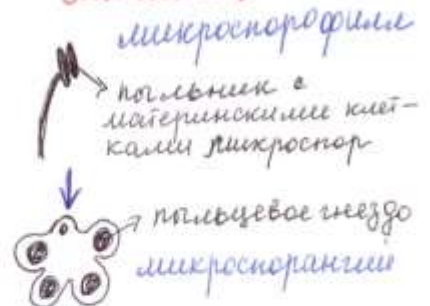 микроспорофилл
пыльник с
материнскими клет-
ками микроспор
пыльцевое гнездо
микроспорангий